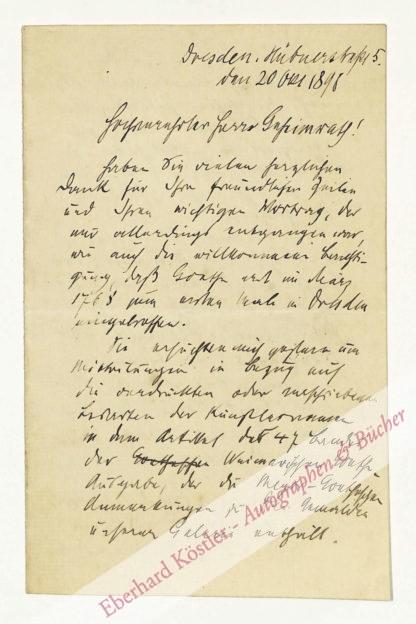 Dresden. Hübnerstraße 5.
den 20 Okt 189
Hochverehrter Herr Geheimrath!
Haben Sie vielen herzlichen
Dank für Ihre freundlichen Zeilen
und Ihren wichtigen Vortrag, der
mir allerdings entgangen war,
wie auch die willkommene Berichti-
gung, daß Goethe erst im März
1768 zum ersten Male in Dresden
eingetroffen.
Sie ersuchten mich gestern um
Mitteilungen in Bezug auf
die verdruckten oder verschriebenen
Lesarten der Künstlernamen
in dem Artikel des 47 Bandes
der Goetheschen Weimarischen Goethe
Ausgabe, der die Meyer-Goetheschen
Anmerkungen zu Gemälden
unserer Galerie enthält.
Eberhard Köstler - Autographen & Bücher